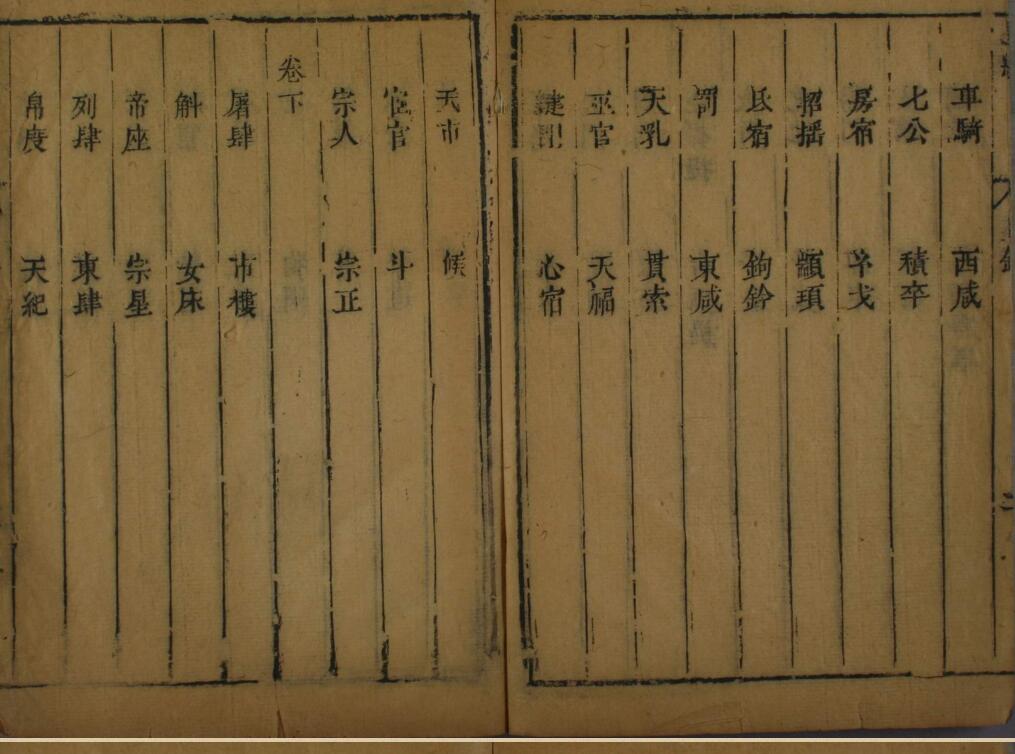 車騎 西咸
七公 積卒
房宿 㐧戈
招搖 顓頊
氐宿 鉤鈐
罰 東咸
天乳 貫索
巫官 天福
鍵閉 心宿
天市 候
宦官 斗
宗人 宗正
卷下
屠肆 市樓
斛 女床
帝座 宗星
列肆 東肆
帛度 天紀